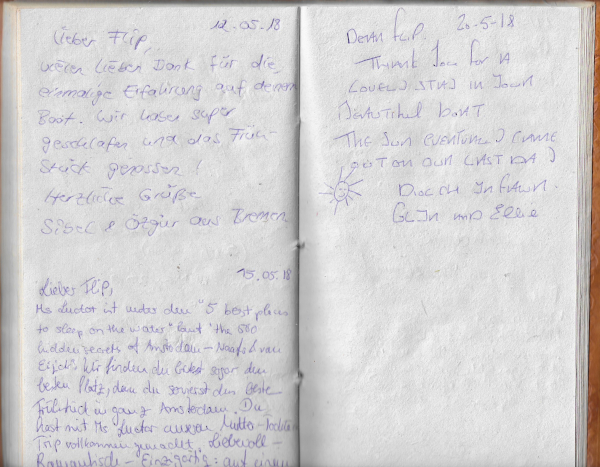 12.05.18
Lieber Flip,
vielen lieben Dank für die
einmalige Erfahrung auf deinem
Boot. Wir haben super
geschlafen und das Früh-
stück genossen!
Herzliche Grüße
Sibel & Özgür aus Bremen
15.05.18
Lieber Flip,
Ms Luctor ist unter den "5 best places
to sleep on the water" laut "the 500
hidden secrets of Amsterdam –
Wir finden du bist sogar den
besten Platz, denn du servierst das beste
Frühstück in ganz Amsterdam. Du
hast mit Ms Luctor unseren Mutter-Tochter
Trip vollkommen gemacht. Liebevoll –
Romantisch – Einzigartig: auf einem
20-5-18
DEAR FLIP.
THANK YOU FOR A
LOVELY STAY IN YOUR
BEAUTIFUL BOAT
THE SUN EVENTUALLY CAME
OUT ON OUR LAST DAY
GLYN AND Ellie